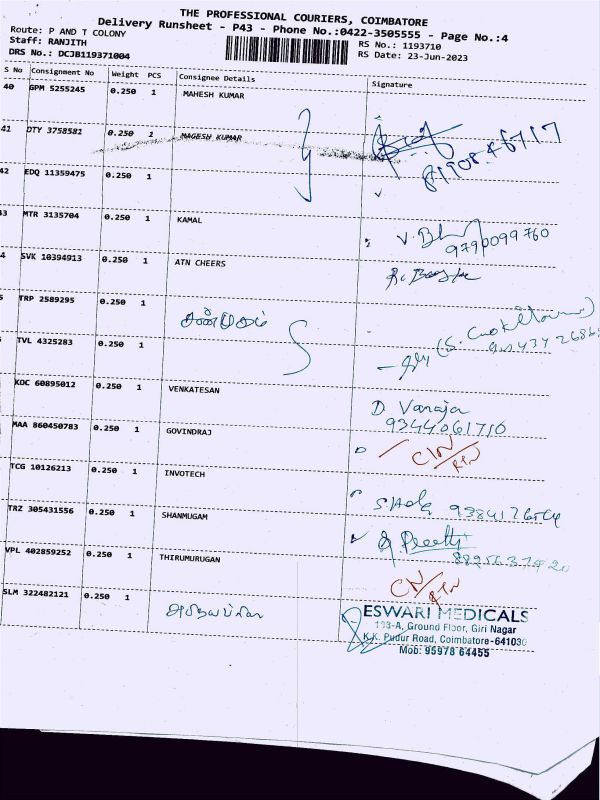 THE PROFESSIONAL COURIERS, COIMBATORE
Delivery Runsheet - P43 - Phone No.:0422-3505555 - Page No.:4
Route: P AND T COLONY
Staff: RANJITH
DRS No.: DCJB119371004
RS No.: 1193710
RS Date: 23-Jun-2023
S No Consignment No Weight PCS Consignee Details Signature
40 GPM 5255245 0.250 1 MAHESH KUMAR
41 DTY 3758581 0.250 1 MAGESH KUMAR
42 EDQ 11359475 0.250 1
43 MTR 3135704 0.250 1 KAMAL
9790099760
4 SVK 10394913 0.250 1 ATN CHEERS
5 TRP 2589295 0.250 1
TVL 4325283 0.250 1
KOC 60895012 0.250 1 VENKATESAN D. Vanaja
9344061710
MAA 860450783 0.250 1 GOVINDRAJ CN/RTN
TCG 10126213 0.250 1 INVOTECH
TRZ 305431556 0.250 1 SHANMUGAM
VPL 402859252 0.250 1 THIRUMURUGAN CN/RTN
SLM 322482121 0.250 1
ESWARI MEDICALS
193-A, Ground Floor, Giri Nagar
K.K. Pudur Road, Coimbatore-641030
Mob: 95978 64455